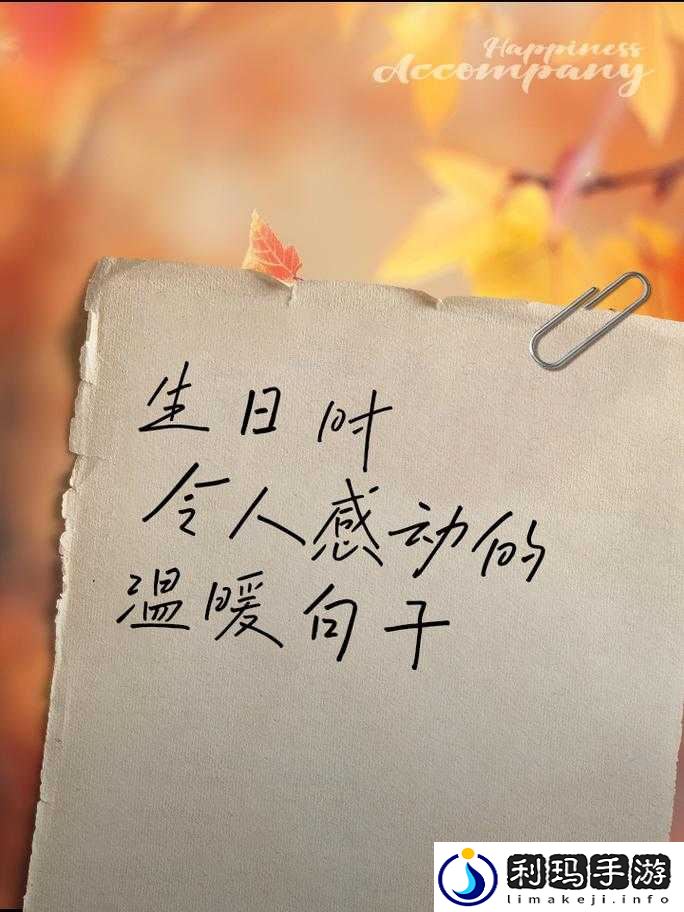 Happiness
Accompany
生日时
令人感动的
温暖句子
利玛手游
limakeji.info